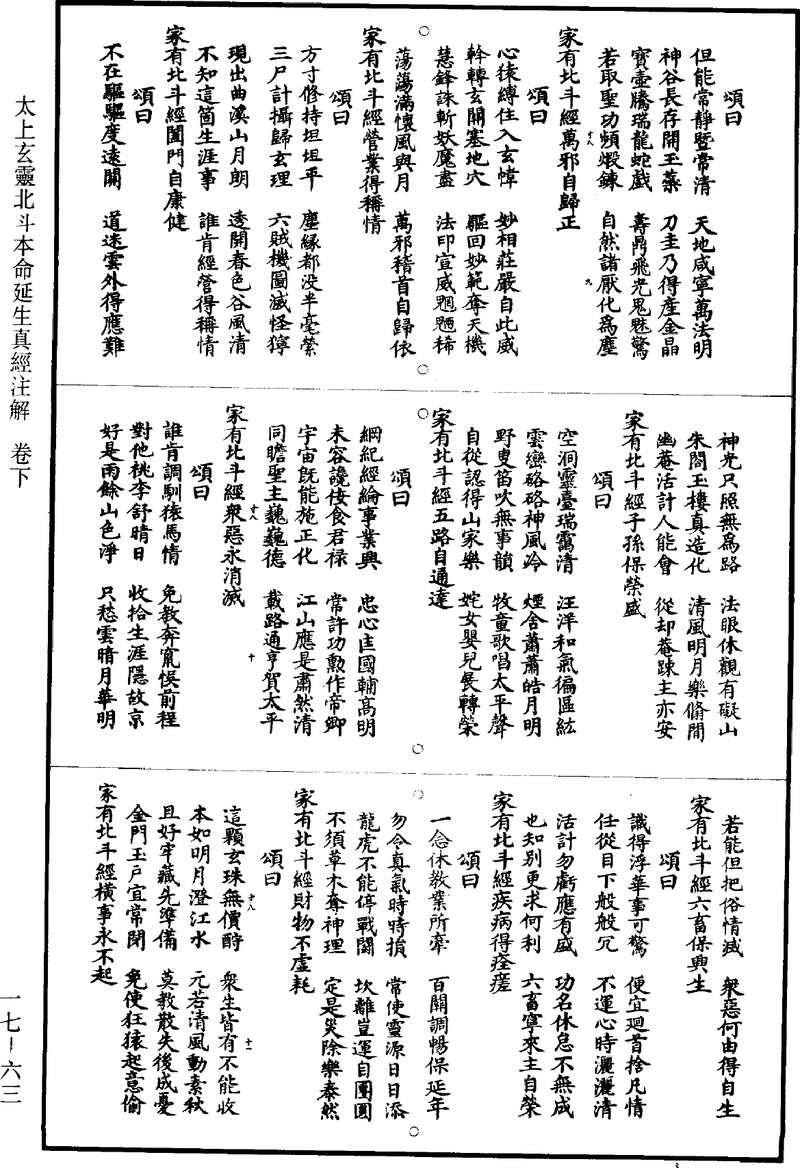 太上玄靈北斗本命延生真經注解　卷下
頌曰
但能常靜暨常清　天地咸寧萬法明
神谷長存開玉蘂　刀圭乃得産金晶
寶壺騰瑞龍蛇戲　壽鼎飛光鬼魅驚
若取聖功頻煅鍊　自然諸厭化爲塵
家有北斗經萬邪自歸正
頌曰
心猿縛住入玄幃　妙相莊嚴自此威
斡轉玄關塞地穴　驅回妙範奪天機
慧鋒誅斬妖魔盡　法印宣威魍魎稀
蕩蕩滿懷風與月　萬邪稽首自歸依
家有北斗經營業得稱情
頌曰
方寸修持坦坦平　塵緣都没半毫縈
三尸計攝歸玄理　六賊機圖滅怪獰
現出曲溪山月朗　透開春色谷風清
不知這箇生涯事　誰肯經營得稱情
家有北斗經闔門自康健
頌曰
不在驅驅度遠關　道迷雲外得應難
神光只照無爲路　法眼休觀有礙山
朱閣玉樓真造化　清風明月樂脩閒
幽菴活計人能會　從却菴踈主亦安
家有北斗經子孫保榮盛
頌曰
空洞靈臺瑞靄清　汪洋和氣徧區絃
雲巒硌硌神風冷　煙舍蕭蕭皓月明
野叟笛吹無事韻　牧童歌唱太平聲
自從認得山家樂　姹女嬰兒展轉榮
家有北斗經五路自通達
頌曰
綱紀經綸事業興　忠心匡國輔高明
未容讒佞食君禄　常許功勲作帝卿
宇宙旣能施正化　江山應是肅然清
同瞻聖主巍巍德　載路通亨賀太平
家有北斗經衆惡永消滅
頌曰
誰肯調馴猿馬情　免教奔竄悞前程
對他桃李舒晴日　收拾生涯隱故京
好是雨餘山色淨　只愁雲暗月華明
若能但把俗情滅　衆惡何由得自生
家有北斗經六畜保興生
頌曰
識得浮華事可驚　便宜廻首捨凡情
任從目下般般冗　不運心時灑灑清
活計勿虧應有盛　功名休怠不無成
也知別更求何利　六畜寧來主自榮
家有北斗經疾病得痊瘥
頌曰
一念休教業所牽　百關調暢保延年
勿令真氣時時損　常使靈源日日添
龍虎不能停戰鬭　坎離豈運自團圓
不須草木奪神理　定是災除樂泰然
家有北斗經財物不虛耗
頌曰
這顆玄珠無價酧　衆生皆有不能收
本如明月澄江水　元若清風動素秋
且好牢藏先準備　莫教散失後成憂
金門玉戶宜常閉　免使狂猿起意偷
家有北斗經橫事永不起
一七－六三